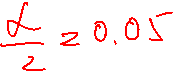 α/2 = 0.05